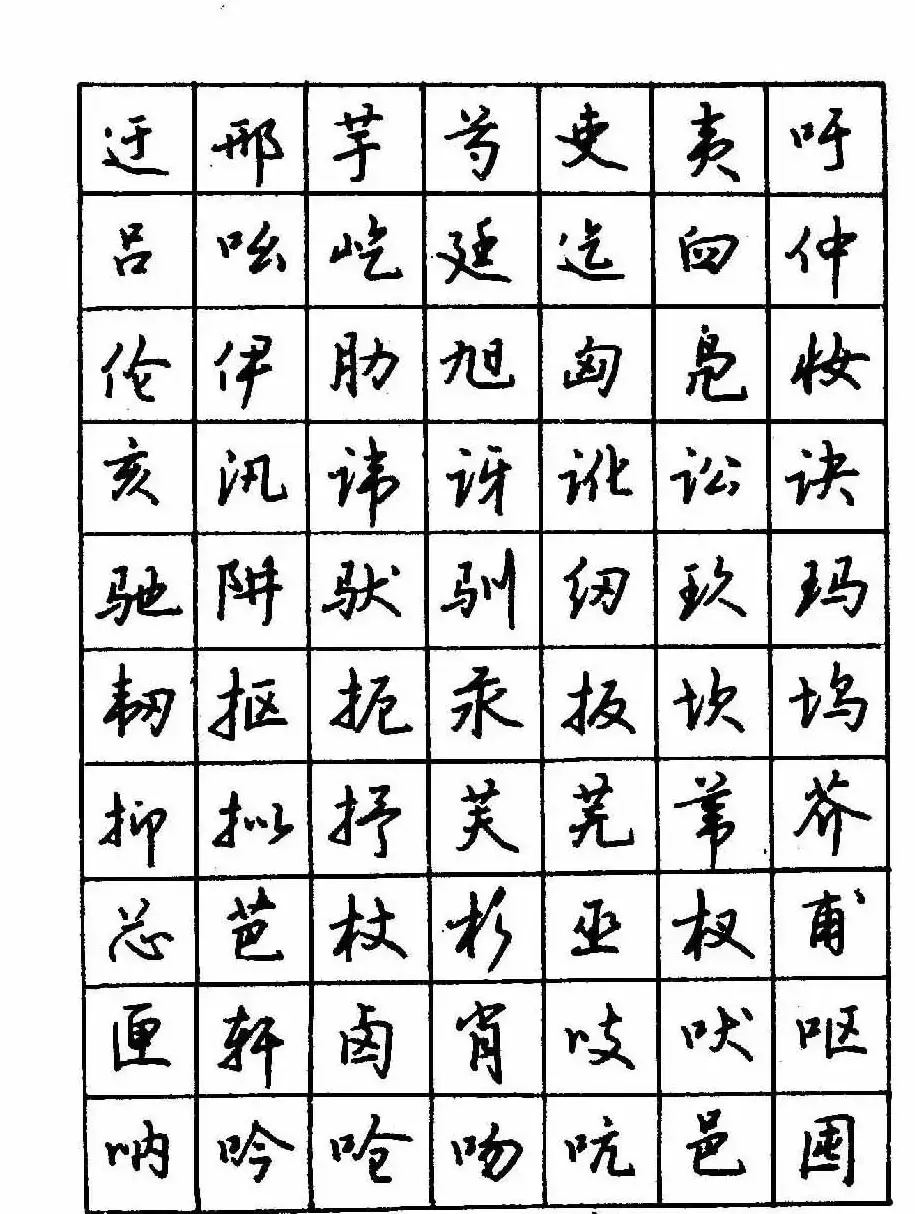 迂邢芋芍吏夷吁
吕吆屹廷迄囟仲
伦伊肋旭匈凫妆
亥汛讳讶讹讼诀
驰阱驮驯纫玖玛
韧抠扼汞扳坎坞
抑拟抒芙芜苇芥
芯芭杖杉巫杈甫
匣轩卤肖吱吠呕
呐吟呛吻吭邑囤